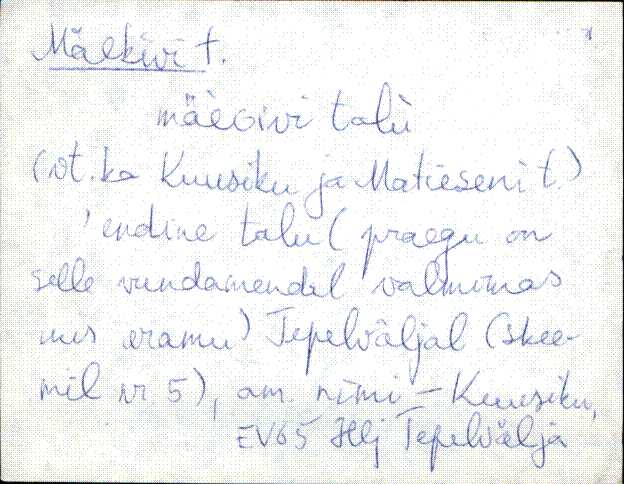 Mäekivi t.
mäèɢivi talù
(vt. ka Kuusiku ja Matieseni t.)
'endine talu (praegu on
selle vundamendil valmimas
uus eramu) Tepelväljal (skee-
mil nr 5), am. nimi – Kuusiku,
EV65 Hlj Tepelvälja